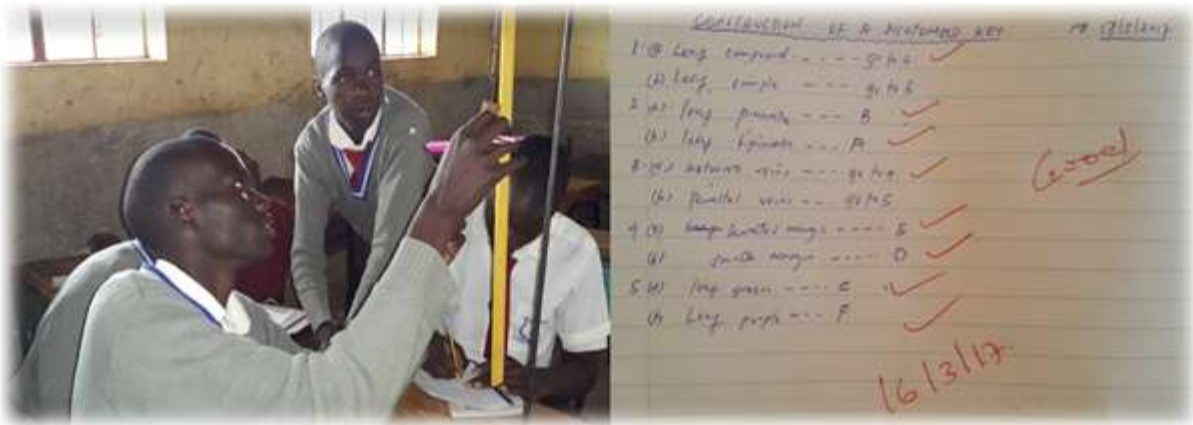 CONSTRUCTION OF A DICHOTOMOUS KEY
1. (a) Leaf compound ---- go to 2
(b) Leaf simple --- go to 3
2. (a) leaf pinnate --- B
(b) leaf bipinnate --- A
3. (a) network veins --- go to 4
(b) parallel veins --- go to 5
4 (a) serrated margin ---- E
(b) smooth margin ---- D
5 (a) leaf green ---- C
(b) Leaf purple --- F
Good
16/3/17